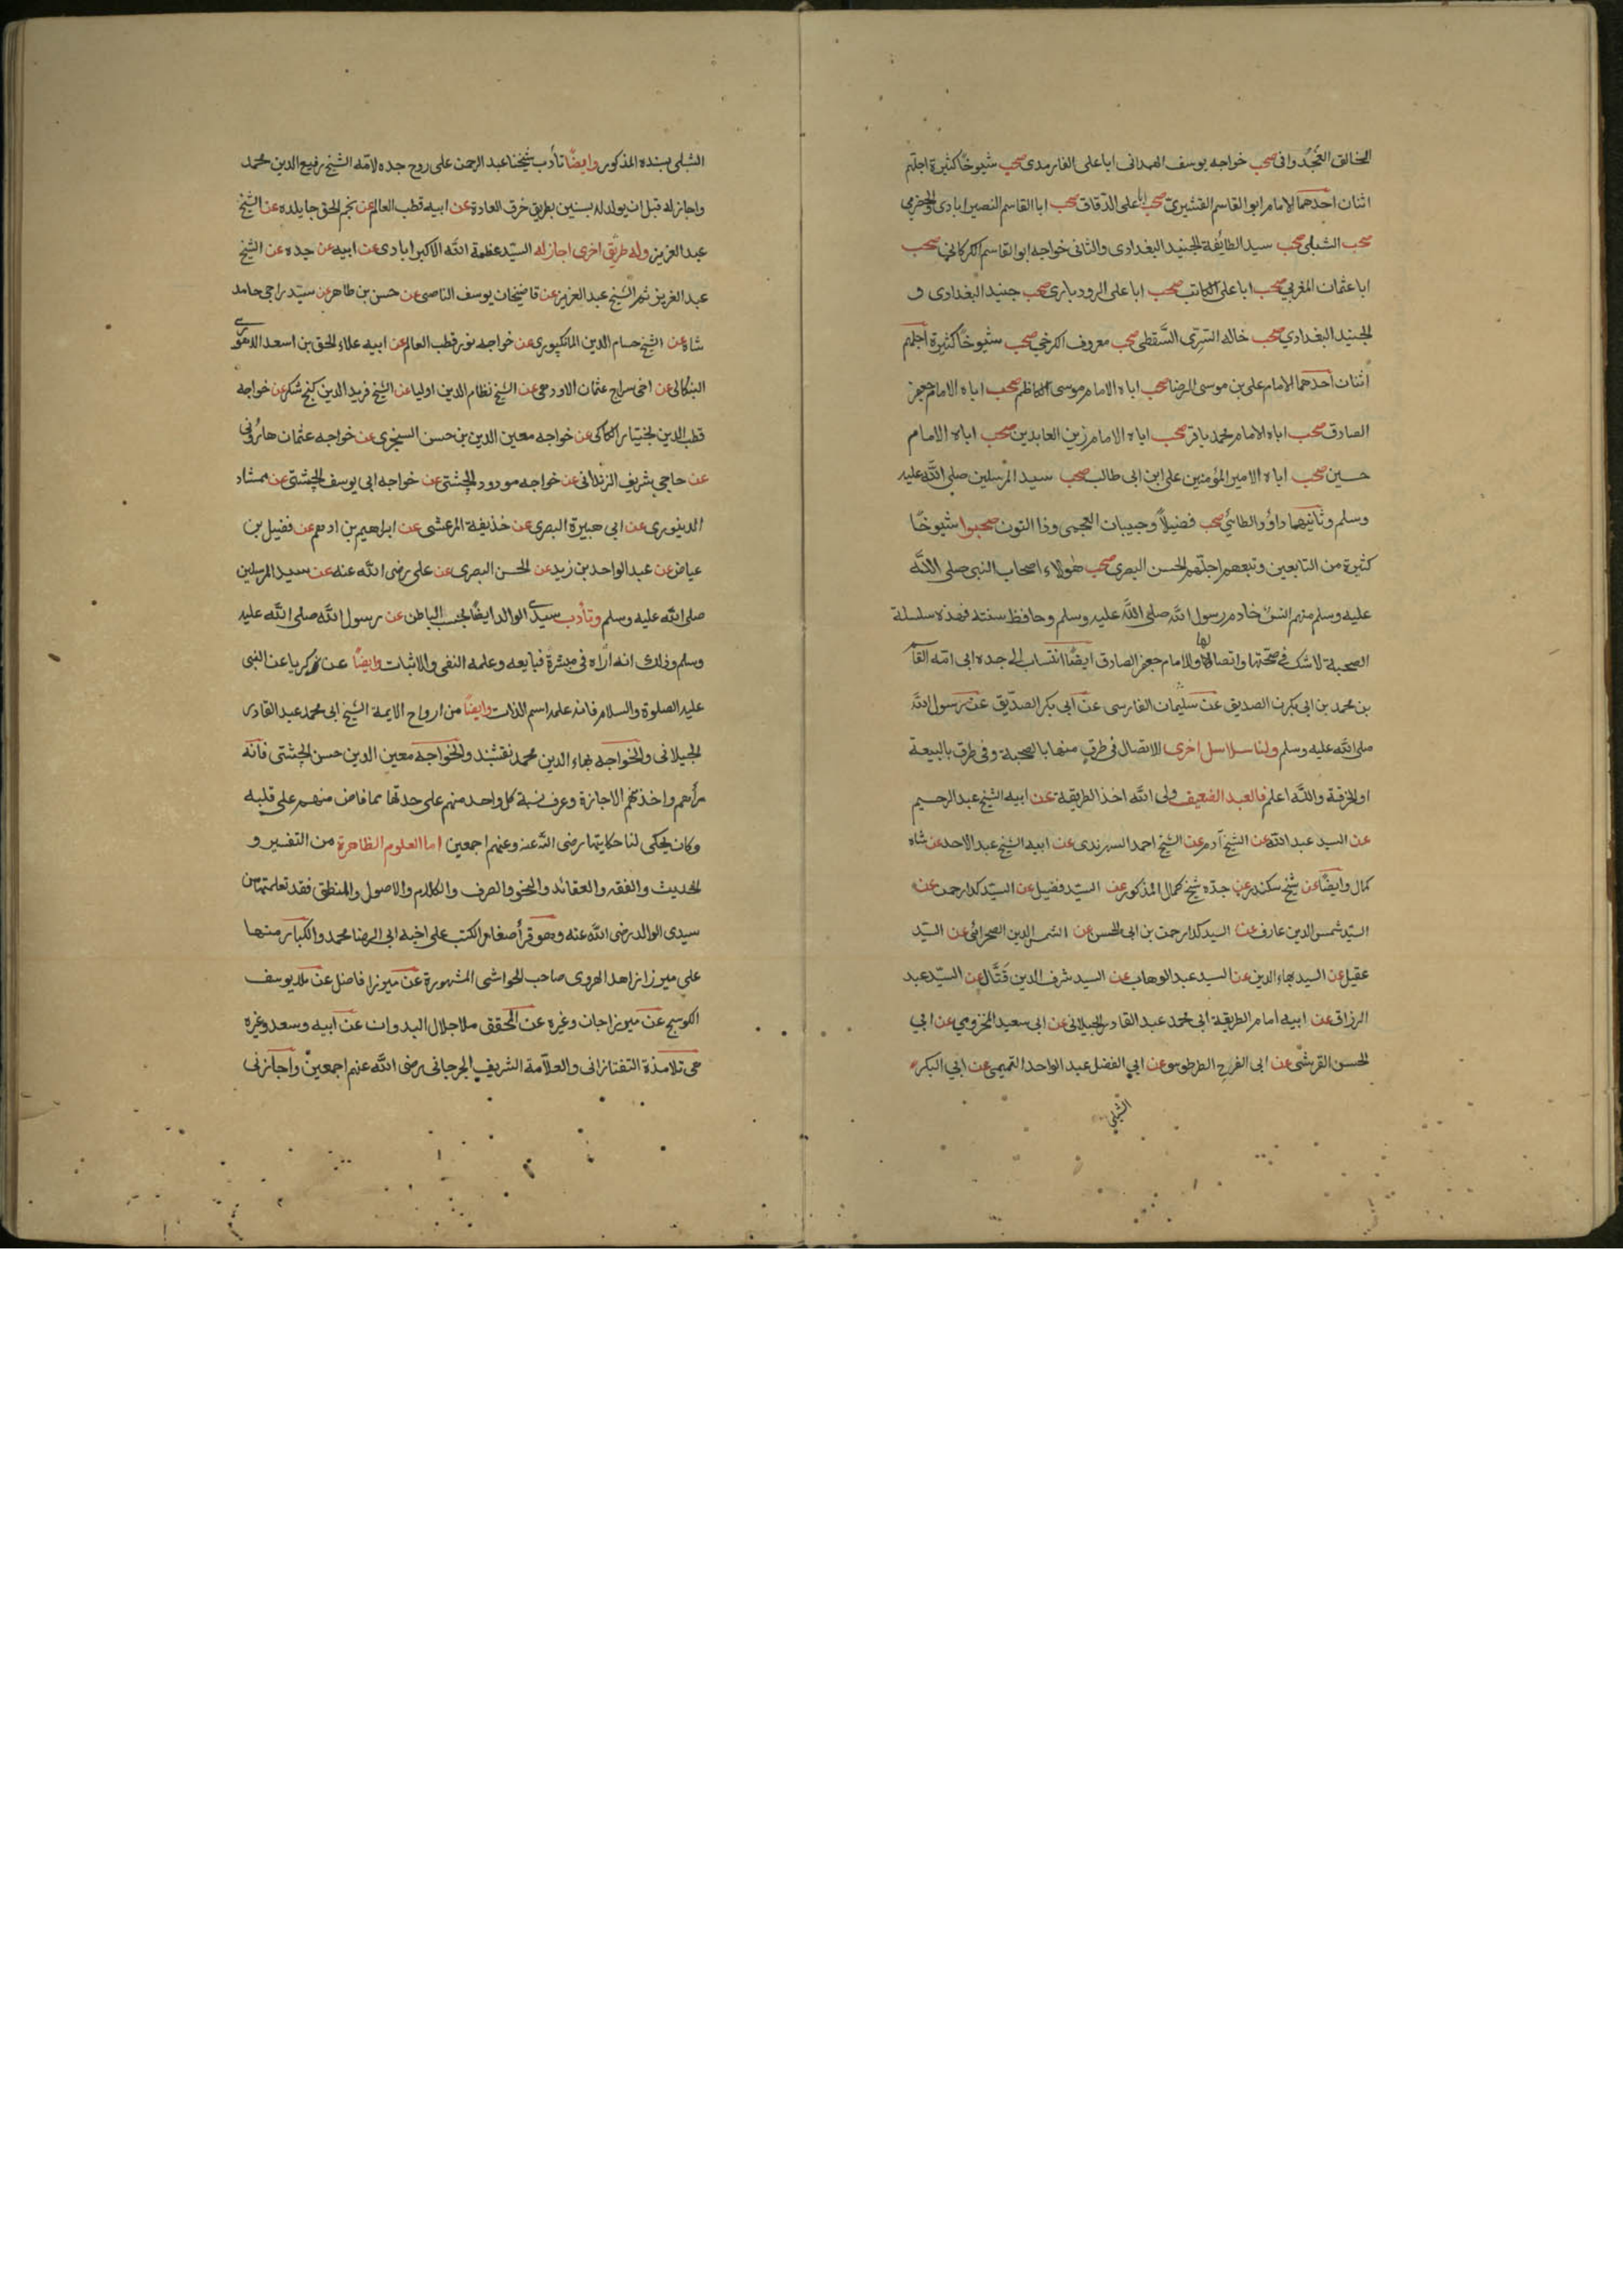 الخالق الغجدوانى صحب خواجه يوسف الهمدانى اباعلى الفارمدى صحب شيوخًا كثيرة اجلهم
اثنان احدهما الامام ابوالقاسم القشيرى صحب اباعلى الدقاق صحب ابا القاسم النصيرابادى والحضرمى
صحب الشبلى صحب سيد الطايفة الجنيد البغدادى والثانى خواجه ابوالقاسم الكركانى صحب
اباعثمان المغربي صحب اباعلى الكاتب صحب اباعلى الرودبارى صحب جنيد البغدادى و
الجنيد البغدادي صحب خاله السرى السَّقطى صحب معروف الكرخي صحب شيوخًا كثيرة اجلهم
اثنان احدهما الامام على بن موسى الرضا صحب اباه الامام موسى الكاظم صحب اباه الامام جعفر
الصادق صحب اباه الامام محمد باقر صحب اباه الامام زين العابدين صحب اباه الامام
حسين صحب اباه الامير المؤمنين على ابن ابى طالب صحب سيد المرسلين صلى الله عليه
وسلم وثانيهما داؤد الطائي صحب فضيلاً وحبيبان العجمى وذا النون صحبوا شيوخًا
كثيرة من التابعين وتبعهم اجلهم الحسن البصرى صحب هؤلاء اصحاب النبى صلى الله
عليه وسلم منهم انس خادم رسول الله صلى الله عليه وسلم وحافظ سنته فهذه سلسلة
الصحبة لاشك فى صحتها واتصالها والامام جعفر الصادق ايضًا انتساب الى جده ابى امه القا
بن محمد بن ابى بكرن الصديق عن سليمان الفارسى عن ابى بكر الصديق عن رسول الله
صلى الله عليه وسلم ولنا سلاسل اخرى الاتصال فى طرق منها بالصحبة وفى طرق بالبيعة
اوالخرقة والله اعلم فالعبد الضعيف ولى الله اخذ الطريقة عن ابيه الشيخ عبد الرحيم
عن السيد عبد الله عن الشيخ آدم عن الشيخ احمد السهرندى عن ابيه الشيخ عبد الاحد عن شاه
كمال وايضًا عن شيخ سكندر عن جده شيخ كمال المذكور عن السيد فضيل عن السيد كدارحمن عن
السيد شمس الدين عارف عن السيد كدارحمن بن ابى الحسن عن الشمس الدين الصحرائى عن السيد
عقيل عن السيد بهاء الدين عن السيد عبد الوهاب عن السيد شرف الدين قتَّال عن السيد عبد
الرزاق عن ابيه امام الطريقة ابى محمد عبد القادر الجيلانى عن ابى سعيد المخزومي عن ابي
الحسن القرشى عن ابى الفرح الطرطوسو عن ابى الفضل عبد الواحد التميمى عن ابي البكر
الشبلي
الشبلى بسنده المذكور وايضًا تأدب شيخنا عبد الرحمن على روح جده لامه الشيخ رفيع الدين محمد
واجاز له قبل ان يولد له بسنين بطريق خرق العادة عن ابيه قطب العالم عن نجم الحق جايلده عن الشيخ
عبد العزيز وله طريق اخرى اجاز له السيد عظمة الله الاكبرابادى عن ابيه عن جده عن الشيخ
عبد العزيز ثم الشيخ عبد العزيز عن قاضيخان يوسف الناصحى عن حسن بن طاهر عن سيد راجى حامد
شاه عن الشيخ حسام الدين المانكپورى عن خواجه نور قطب العالم عن ابيه علاء الحق بن اسعد الاهورى
البنكالى عن اخى سراج عثمان الاودهى عن الشيخ نظام الدين اوليا عن الشيخ فريد الدين كنج شكر عن خواجه
قطب الدين بختيار الكاكى عن خواجه معين الدين بن حسن السنجرى عن خواجه عثمان هارونى
عن حاجى شريف الزندانى عن خواجه مودود الچشتى عن خواجه ابى يوسف الچشتى عن ممشاد
الدينورى عن ابى هبيرة البصرى عن حذيفة المرعشى عن ابراهيم بن ادهم عن فضيل بن
عياض عن عبد الواحد بن زيد عن الحسن البصرى عن على رضى الله عنه عن سيد المرسلين
صلى الله عليه وسلم وتأدب سيدى الوالد ايضًا بحسب الباطن عن رسول الله صلى الله عليه
وسلم وذلك انه اراه فى مبشرة فبايعه وعلمه النفى والاثبات وايضًا عن زكريا عن النبى
عليه الصلوة والسلام فانه علمه اسم الذات وايضًا من ارواح الايمة الشيخ ابى محمد عبد القادر
الجيلانى والخواجه بهاء الدين محمد نقشبند والخواجه معين الدين حسن الچشتى فانه
رأهم واخذ منهم الاجازة وعرف نسبة كل واحد منهم على حدتها مما فاض منهم على قلبه
وكان يحكى لنا حكايتها رضى الله عنه وعنهم اجمعين اما العلوم الظاهرة من التفسير و
الحديث والفقه والعقائد والنحو والصرف والكلام والاصول والمنطق فقد تعلمتها من
سيدى الوالد رضى الله عنه وهو قرأ صغار الكتب على اخيه ابى الرضا محمد والكبار منها
على ميرزا زاهد الهروى صاحب الحواشى المشهورة عن ميرزا فاضل عن ملا يوسف
الكوسج عن ميرزاجان وغيره عن المحقق ملا جلال الدوانى عن ابيه وسعد وغيره
هى تلامذة التفتازانى والعلامة الشريف الجرجانى رضى الله عنهم اجمعين واجازنى